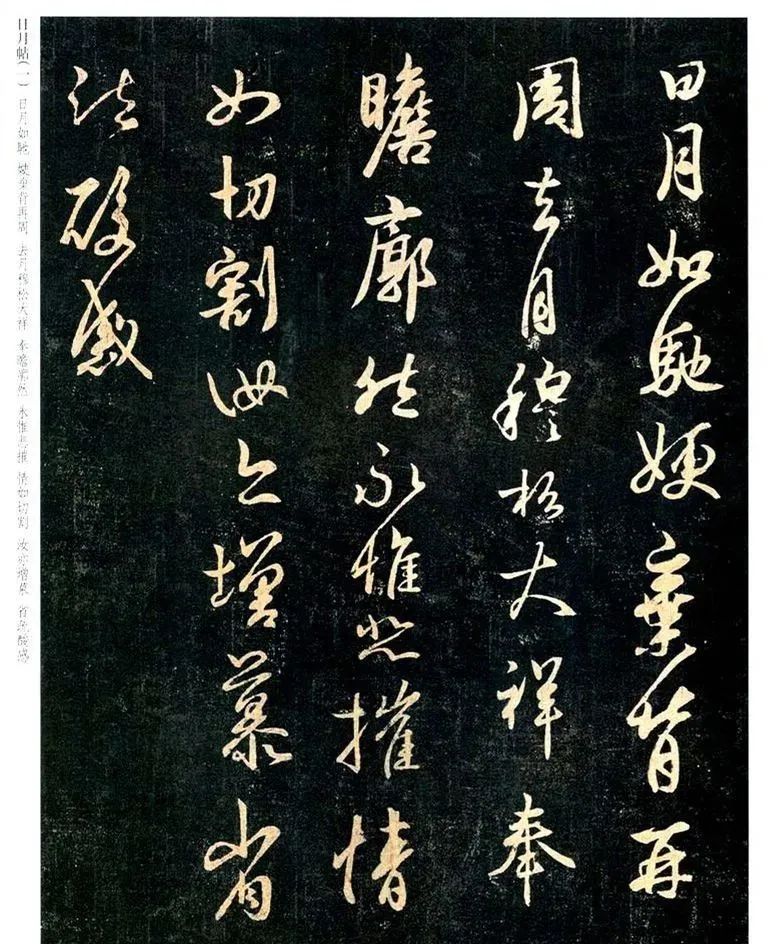 日月如馳嫂棄背再
周去月穆松大祥奉
瞻廓然永惟悲摧情
如切割汝亦增慕省
疏酸感
日月帖（一） 日月如馳 嫂棄背再周 去月穆松大祥 奉瞻廓然 永惟悲摧 情如切割 汝亦增慕 省疏酸感